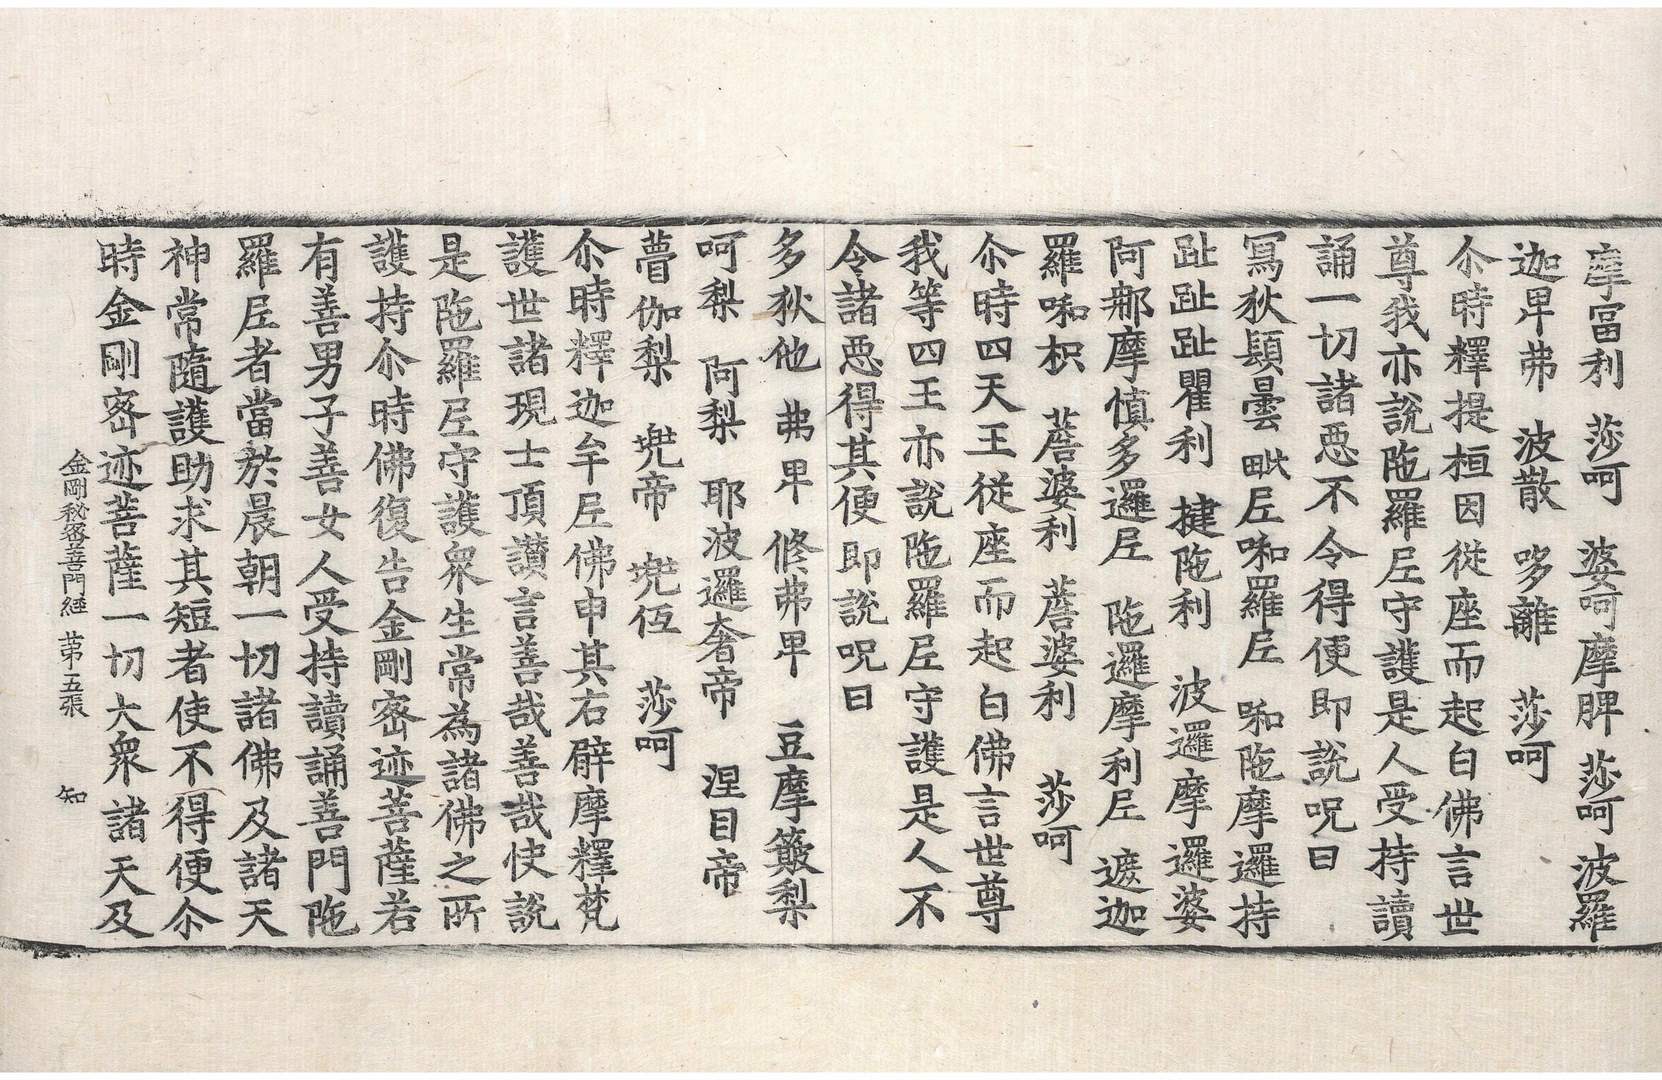 摩富利 莎呵 婆呵摩脾 莎呵 波羅
迦卑弗 波散 哆離 莎呵
尒時釋提桓因從座而起白佛言世
尊我亦說陁羅𡰱守護是人受持讀
誦一切諸惡不令得便即說呪曰
冩狄顕曇 毗𡰱啝羅𡰱 啝陁摩邏持
趾趾趾瞿利 揵陁利 波邏摩邏婆
阿那摩慎多邏𡰱 陁邏摩利𡰱 遮迦
羅啝枳 菩婆利 菩婆利 莎呵
尒時四天王從座而起白佛言世尊
我等四王亦說陁羅𡰱守護是人不
令諸惡得其便即說呪曰
多狄他 弗卑 修弗卑 豆摩簸梨
呵梨 阿梨 耶波邏奢帝 涅目帝
瞢伽梨 兠帝 兠伍 莎呵
尒時釋迦牟𡰱佛申其右臂摩釋梵
護世諸現士頂讃言善哉善哉快說
是陁羅𡰱守護衆生常為諸佛之所
護持尒時佛復告金剛密迹菩薩若
有善男子善女人受持讀誦善門陁
羅𡰱者當於晨朝一切諸佛及諸天
神常隨護助求其短者使不得便尒
時金剛密迹菩薩一切大衆諸天及
金剛秘密善門經 苐五張 知